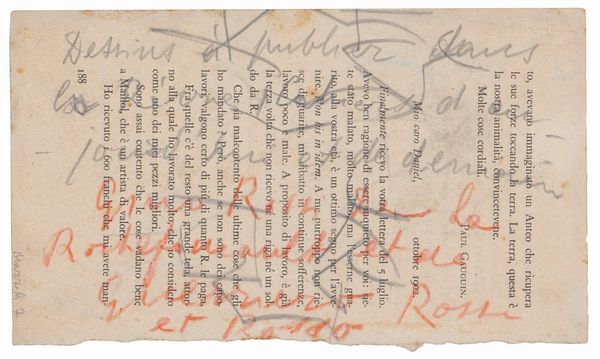 Dessins à publier dans
les
Rosso
et
to, avevano immaginato un Anteo che ricupera
le sue forze toccando la terra. La terra, questa è
la nostra animalità, convincetevene.
Molte cose cordiali.
PAUL GAUGUIN.
ottobre 1902.
Mio caro Daniel,
Finalmente ricevo la vostra lettera del 5 luglio.
Avevo ben ragione di essere inquieto per voi: sie-
te stato malato, molto malato, ma l'esserne gua-
rito, alla vostra età, è un ottimo segno per l'avve-
nire. Non bis in idem. A me purtroppo non rie-
sce di guarire, mi dibatto in continue sofferenze,
lavoro poco e male. A proposito di lavoro, è già
la terza volta che non ricevo né una riga né un sol-
do da R.
Che sia malcontento delle ultime cose che gli
ho mandato? Però, anche se non sono dei capo-
lavori, valgono certo di più di quanto R. le paga.
Fra quelle c'è del resto una grande tela, attor-
no alla quale ho lavorato molto, che io considero
come uno dei miei pezzi migliori.
Sono assai contento che le cose vadano bene
a Maillol, che è un artista di valore.
Ho ricevuto 1.600 franchi che mi avete man-
188